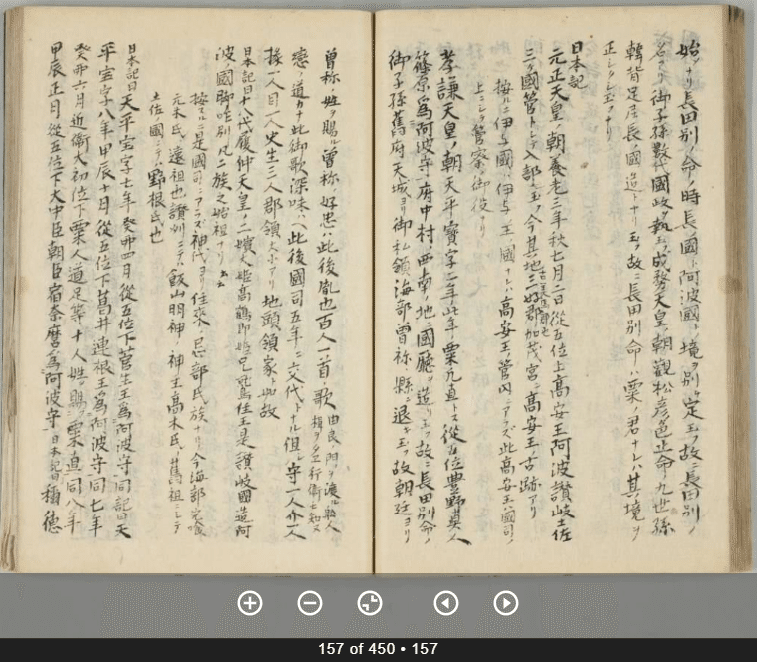 始ヲナリ長田別ノ命ノ時長ノ國ト阿波國ノ境ヲ別チ定玉フ故ニ長田別ノ
名アリ御子孫數代國政ヲ執玉フ成務天皇ノ朝觀松彦色止命ノ九世孫
韓背足尼長ノ國ノ造トナリ玉フ故ニ長田別命ハ粟ノ君ナレハ其ノ境ヲ
正シク玉フナリ
日本記
元正天皇ノ朝養老三年秋七月二日從五位上高安王阿波讃岐土佐
三ヶ國管トシテ入部シ玉フ今其地三好郡加茂宮ニ高安王ノ古跡アリ
按ルニ伊与國ハ伊与ノ王國ナレハ高安王ノ管内ニアラズ此高安王ハ國司ノ
上ニシテ管察ノ御役ナリ
孝謙天皇ノ朝天平ノ寶字二年此年粟凡直トス從五位豊野真人
篠原爲阿波守府中村ノ西南ノ地ニ國廳ヲ造リ玉フ故ニ長田別命ノ
御子孫舊府天城ヨリ御私領海部ノ曽祢ノ縣ニ退キ玉フ故朝廷ヨリ
曽祢ノ姓ヲ賜ル曽祢ノ好忠ハ此後胤也百人一首ノ歌 由良ノ門ヲ渡ル船人
楫ヲタエ行衛モ知ヌ
恋ノ道カナ此御歌深味ハヘ此後國司五年ニ六交代トナル但シ守一人介一人
掾一人目一人史生三人郡領大小アリ地頭領家ト如故
日本記曰十八代履仲天皇ノ二嬪火姫高鶴郎姫兄鷲住王是讃岐國造阿
波國脚咋別凡二族之始祖ナリ云云
按ルニ是國司ニアラズ神代ヨリ住來ノ忌部氏族ナリ今海部宍喰
元木氏ノ遠祖也讃州ニテハ飯山明神ノ神主高木氏ノ舊祖ニシテ
土佐國ニテハ野根氏也
日本記曰天平宝字七年癸卯四月從五位下菅生王爲阿波守同記曰天
平宝字八年甲辰十月從五位下葛井連根主爲阿波守同七年
癸卯六月近衛大初位下粟人道足等十人姓ヲ賜フ粟直同八年
甲辰正月從五位下大中臣朝臣宿奈麿爲阿波守日本記曰稱徳
157 of 450 • 157